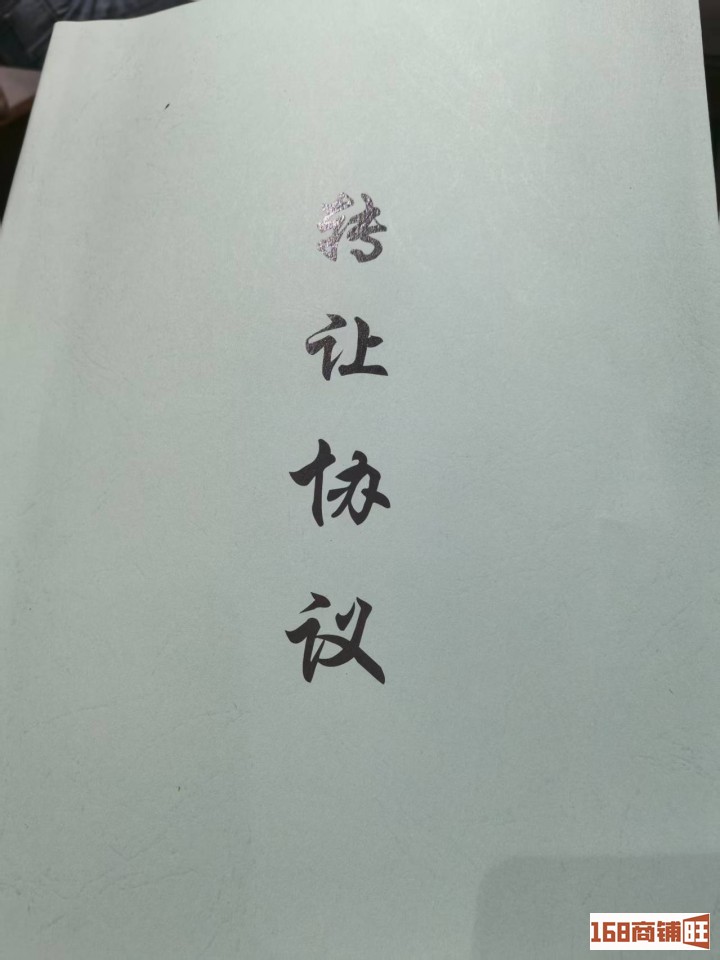 转让协议
168商铺旺